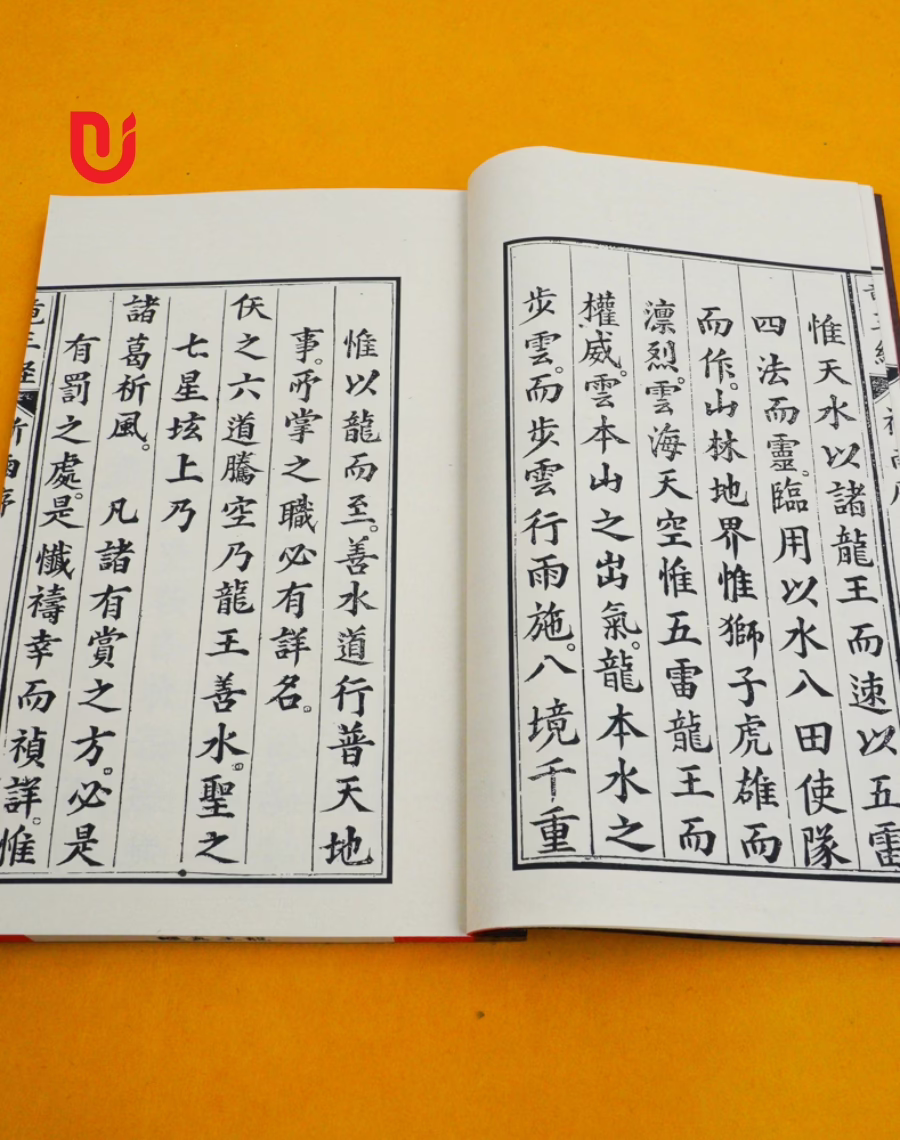 惟天水以諸龍王而速以五雷
四法而靈。臨用以水八田使隊
而作。山林地界惟獅子虎雄而
凛烈。雲海天空惟五雷龍王而
權威。雲本山之出氣。龍本水之
步雲。而步雲行雨施。八境千重
惟以龍而至。善水道行普天地
事。所掌之職必有詳名。
之六道騰空乃龍王善水。聖之
七星垓上乃
諸葛祈風。 凡諸有賞之方。必是
有罰之處。是懺禱幸而禎詳。惟
龍王經 祈雨序